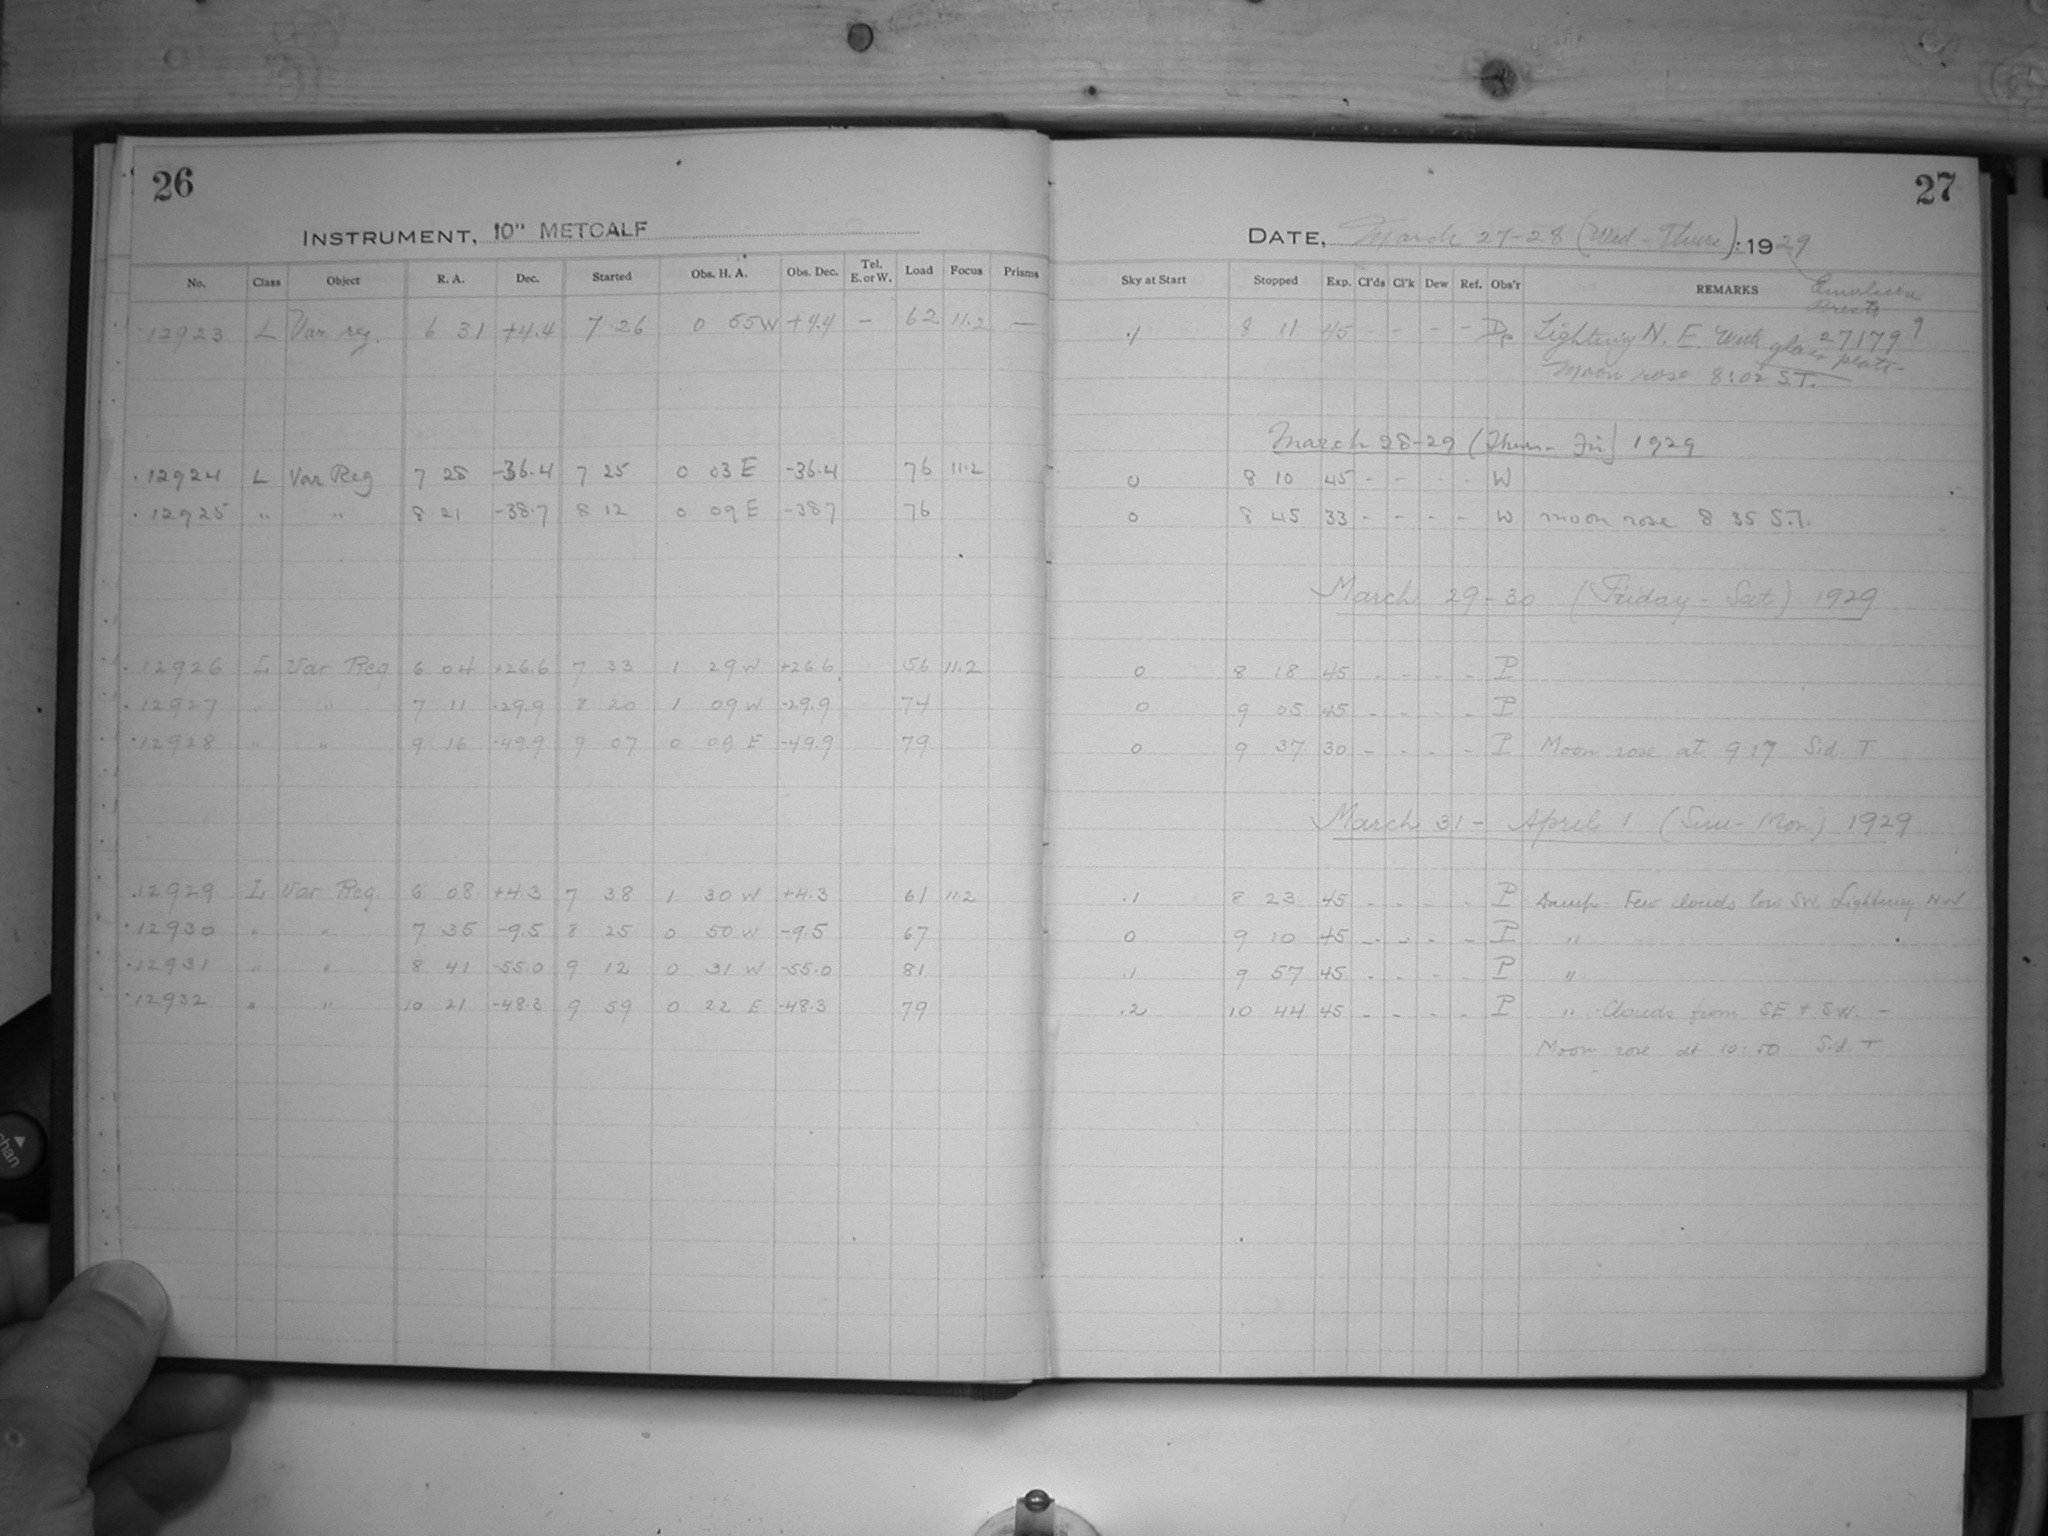 26
INSTRUMENT, 10" METCALF
No. Class Object R. A. Dec. Started Obs. H. A. Obs. Dec. Tel. E. or W. Load Focus Prisms
12923 L Var reg. 6 31 +4.4 7 26 0 55 W +4.4 — 62 11.2 —
12924 L Var Reg 7 28 -36.4 7 25 0 03 E -36.4 76 11.2
12925 " " 8 21 -38.7 8 12 0 09 E -38.7 76
12926 L Var Reg 6 04 +26.6 7 33 1 29 W +26.6 56 11.2
12927 " " 7 11 -29.9 8 20 1 09 W -29.9 74
12928 " " 9 16 -49.9 9 07 0 09 E -49.9 79
12929 L Var Reg. 6 08 +4.3 7 38 1 30 W +4.3 61 11.2
12930 " " 7 35 -9.5 8 25 0 50 W -9.5 67
12931 " " 8 41 -55.0 9 12 0 31 W -55.0 81
12932 " " 10 21 -48.3 9 59 0 22 E -48.3 79
27
DATE, March 27-28 (Wed - Thurs): 1929
Sky at Start Stopped Exp. Cl'ds Cl'k Dew Ref. Obs'r REMARKS
Emulsion
.1 8 11 45 - - - - Lightning N. E. With glass plate 27179
Moon rose 8:02 S.T.
March 28-29 (Thurs - Fri) 1929
0 8 10 45 - - - - W
0 8 45 33 - - - - W moon rose 8 35 S.T.
March 29-30 (Friday - Sat) 1929
0 8 18 45 - - - - P
0 9 05 45 - - - - P
0 9 37 30 - - - - P Moon rose at 9:17 Sid. T
March 31 - April 1 (Sun - Mon) 1929
.1 8 23 45 - - - - P Damp - Few clouds low SW. Lightning NW
0 9 10 45 - - - - P "
.1 9 57 45 - - - - P "
.2 10 44 45 - - - - P " - Clouds from SE + SW. -
Moon rose at 10:50 Sid. T